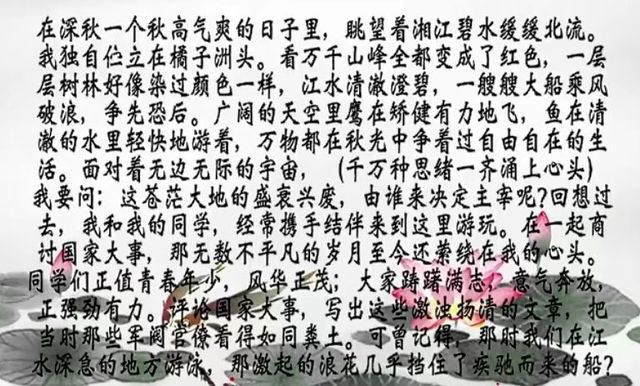 在深秋一个秋高气爽的日子里，眺望着湘江碧水缓缓北流。
我独自伫立在橘子洲头。看万千山峰全都变成了红色，一层
层树林好像染过颜色一样，江水清澈澄碧，一艘艘大船乘风
破浪，争先恐后。广阔的天空里鹰在矫健有力地飞，鱼在清
澈的水里轻快地游着，万物都在秋光中争着过自由自在的生
活。面对着无边无际的宇宙，（千万种思绪一齐涌上心头）
我要问：这苍茫大地的盛衰兴废，由谁来决定主宰呢？回想过
去，我和我的同学，经常携手结伴来到这里游玩。在一起商
讨国家大事，那无数不平凡的岁月至今还萦绕在我的心头。
同学们正值青春年少，风华正茂；大家踌躇满志，意气奔放，
正强劲有力。评论国家大事，写出这些激浊扬清的文章，把
当时那些军阀官僚看得如同粪土。可曾记得，那时我们在江
水深急的地方游泳，那激起的浪花几乎挡住了疾驰而来的船？